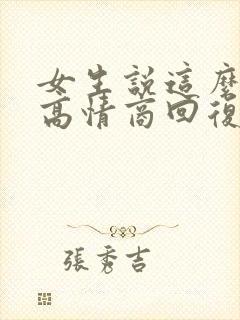 女生說這麼
高情商回復
張秀吉